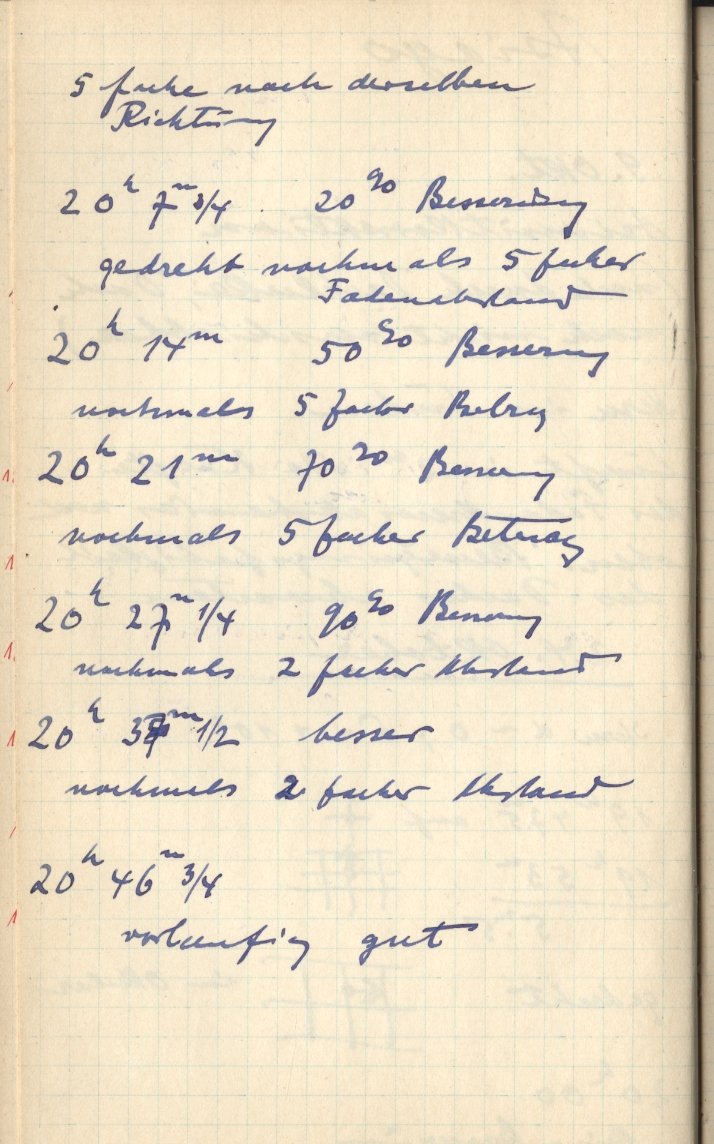 5 fache nach derselben
Richtung
20ʰ 7ᵐ 3/4 20%o Besserung
gedreht nochmals 5 facher
Fadenabstand
20ʰ 14ᵐ 50%o Besserung
nochmals 5 facher Betrag
20ʰ 21ᵐ 70%o Besserung
nochmals 5 facher Betrag
20ʰ 27ᵐ 1/4 90%o Besserung
nochmals 2 facher Abstand
20ʰ ᵐ 1/2 besser
nochmals 2 facher Abstand
20ʰ 46ᵐ 3/4
vorlaufig gut